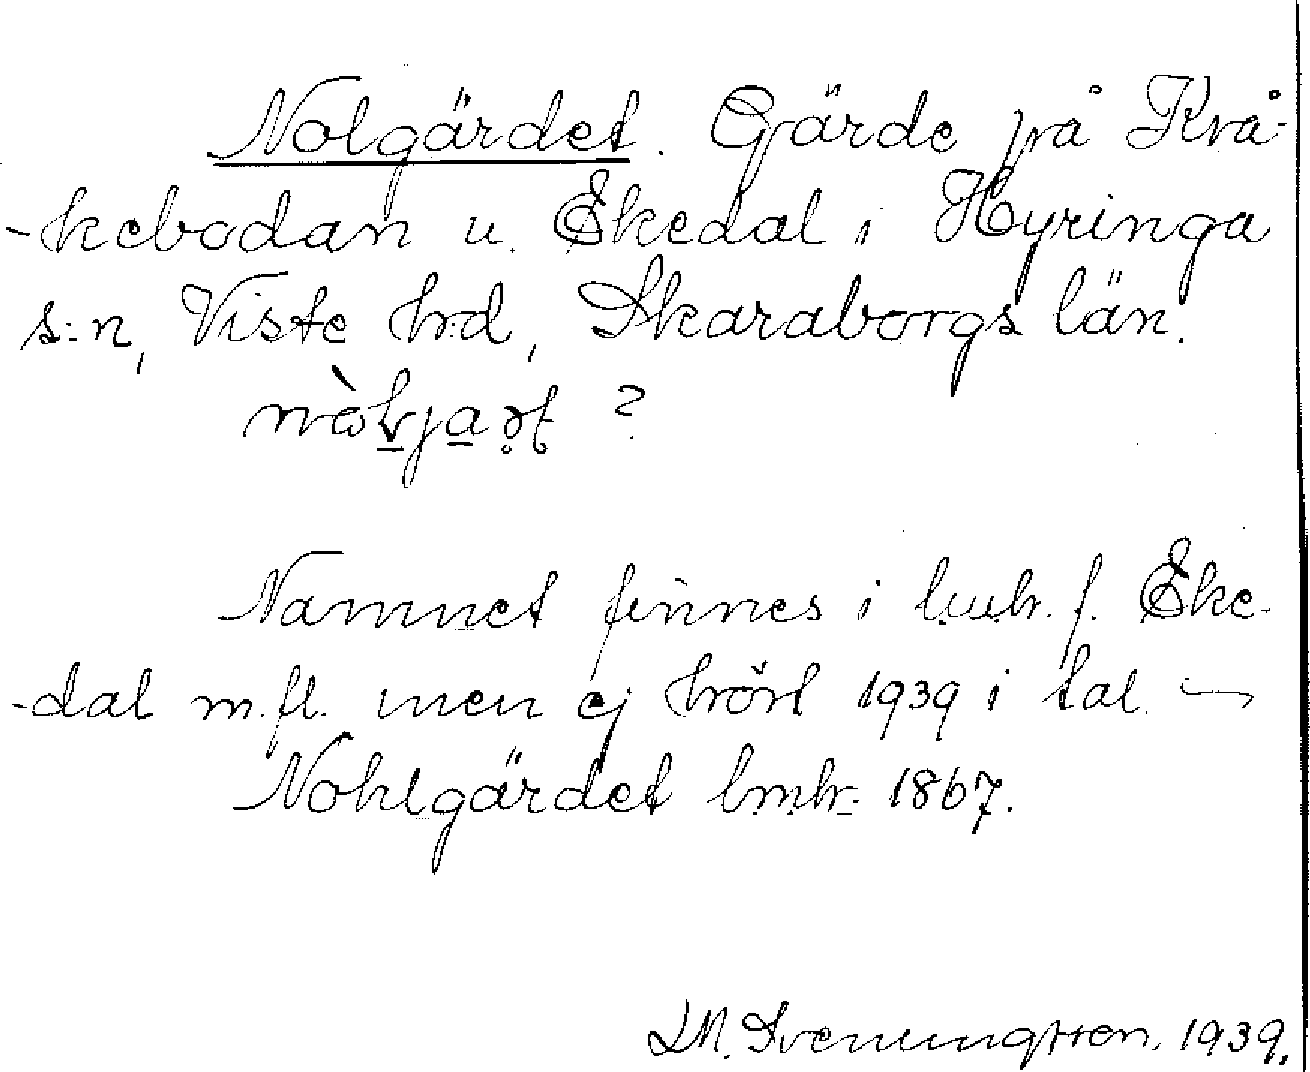 Nolgärdet. Gärde på Kvå-
-kebodan u. Ekedal i Hyringa
s:n, Viste hrd, Skaraborgs län.
?
Namnet finnes i f. Eke-
-dal m.fl. men ej hört 1939 i tal. —
Nohlgärdet lmtr. 1867.
LM. Svenungsson. 1939.